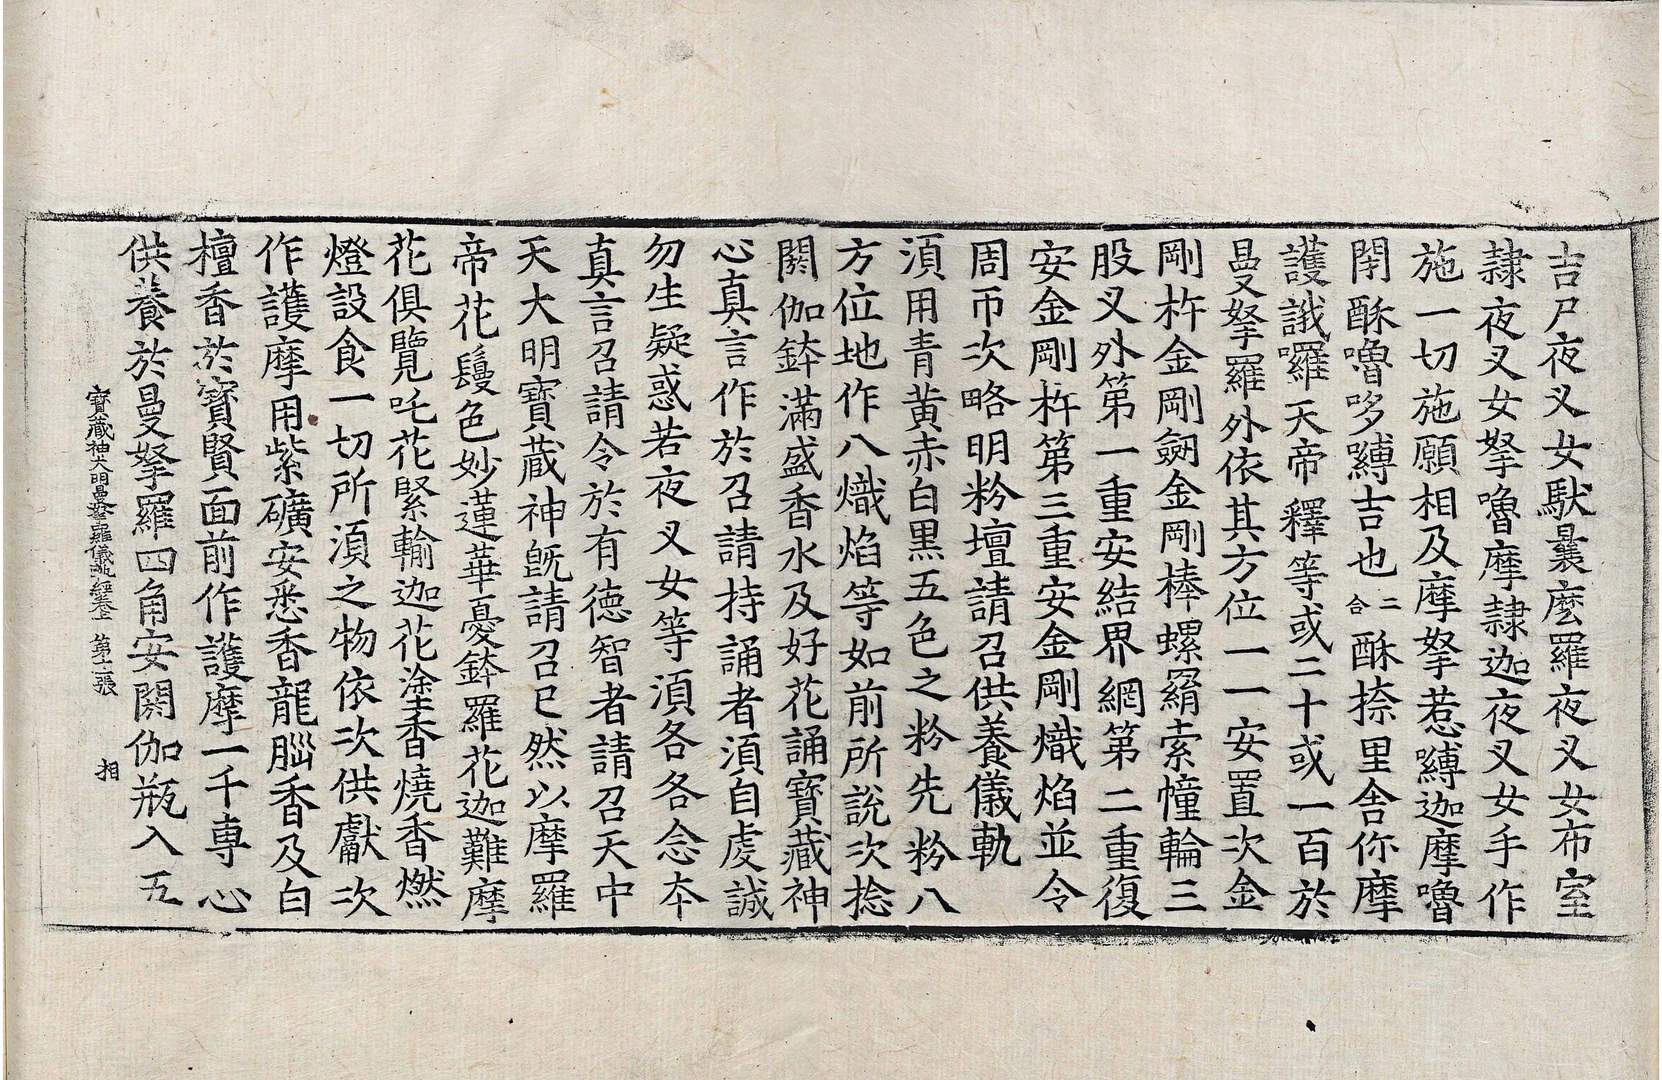 吉尸夜叉女馱曩麽羅夜叉女布室
隷夜叉女拏嚕摩隷迦夜叉女手作
施一切施願相及摩拏惹嚩迦摩嚕
閉酥嚕哆嚩吉也二合酥捺里舍你摩
護誐囉天帝釋等或二十或一百於
曼拏羅外依其方位一一安置次金
剛杵金剛劒金剛棒螺羂索幢輪三
股叉外第一重安結界網第二重復
安金剛杵第三重安金剛熾焰並令
周帀次略明粉壇請召供養儀軌
須用青黃赤白黑五色之粉先粉八
方位地作八熾焰等如前所說次捻
閼伽鉢滿盛香水及好花誦寶藏神
心真言作於召請持誦者須自虔誠
勿生疑惑若夜叉女等須各各念本
真言召請令於有德智者請召天中
天大明寶藏神旣請召已然以摩羅
帝花鬘色妙蓮華憂鉢羅花迦難摩
花俱覽吒花緊輸迦花塗香燒香燃
燈設食一切所須之物依次供獻次
作護摩用紫礦安悉香龍腦香及白
檀香於寶賢面前作護摩一千專心
供養於曼拏羅四角安閼伽瓶入五
寶藏神大明曼拏羅儀軌經卷上 第十二張 相